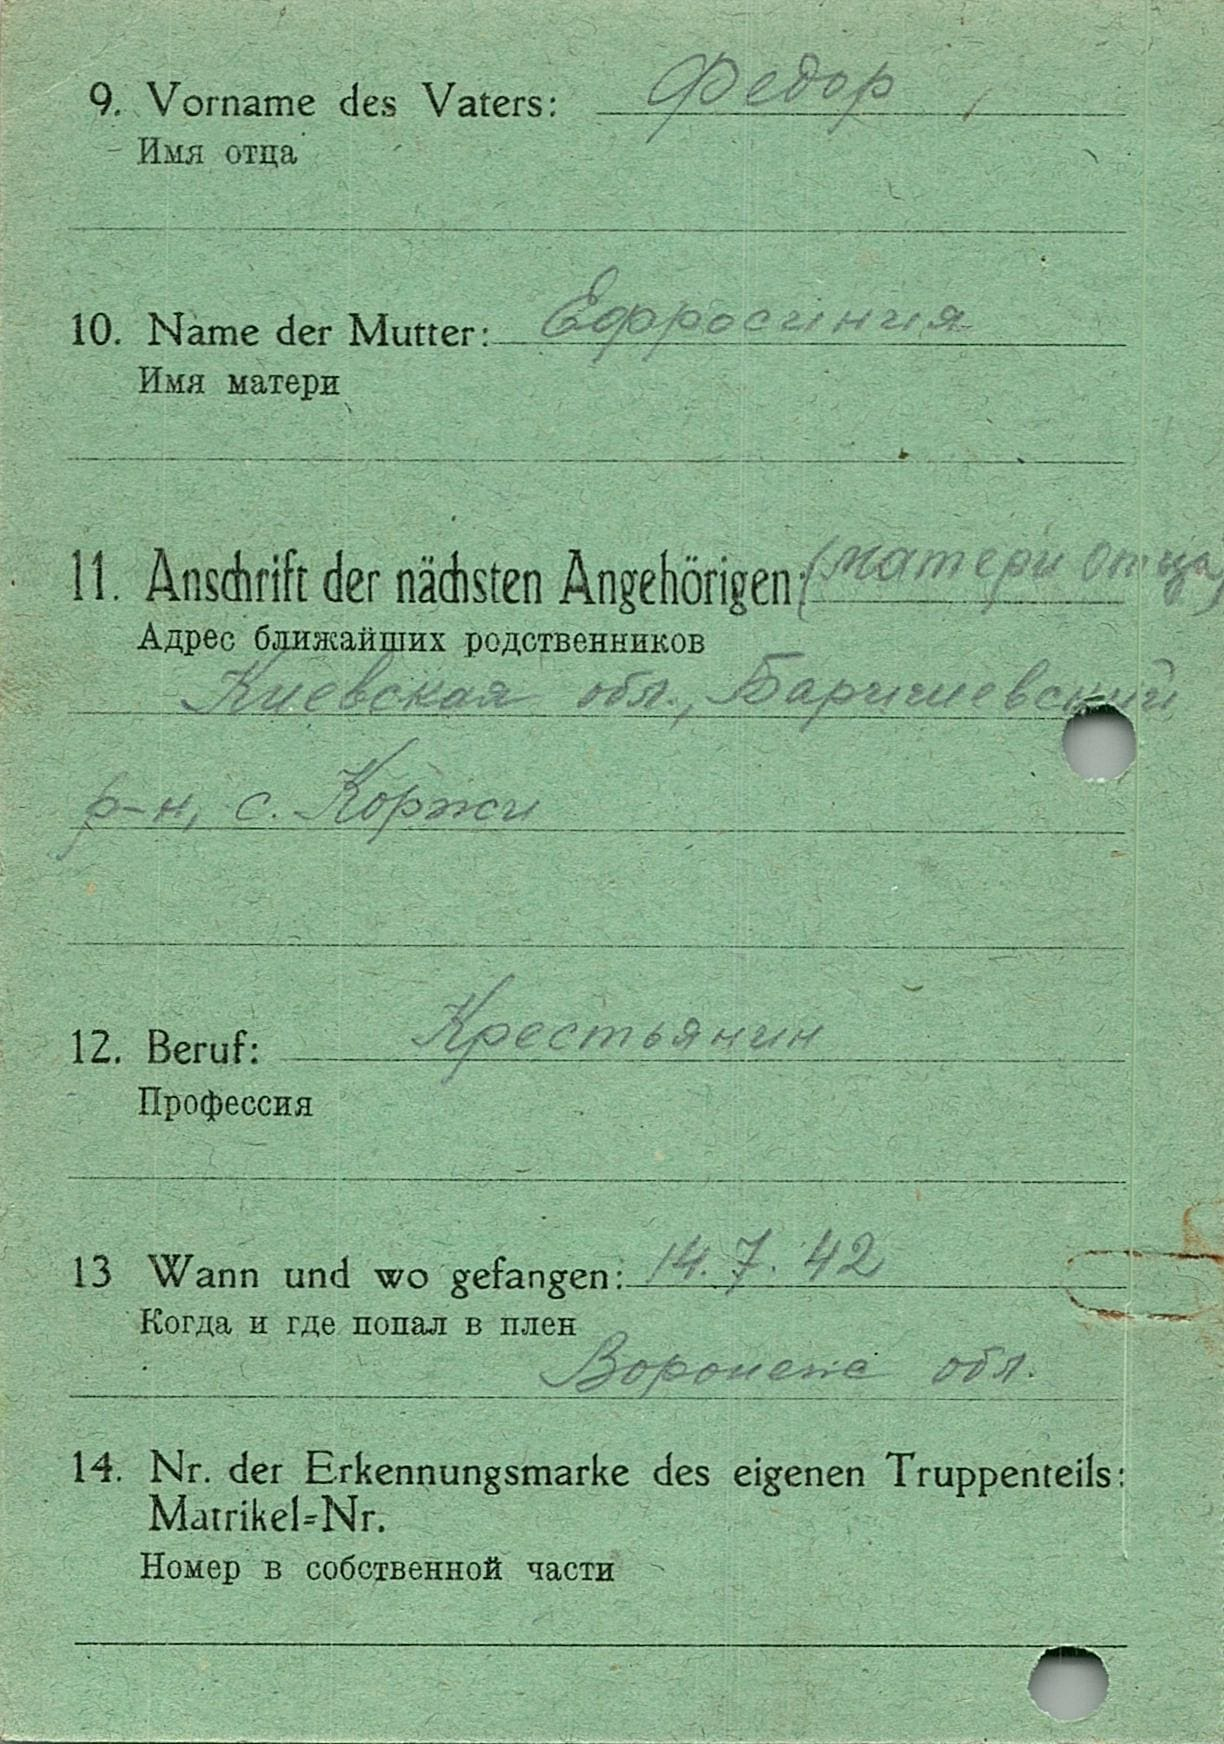 9. Vorname des Vaters: Федор
Имя отца
10. Name der Mutter: Ефросиния
Имя матери
11. Anschrift der nächsten Angehörigen: (матери отца)
Адрес ближайших родственников
Киевская обл., Баришевский
р-н, с. Коржи
12. Beruf: Крестьянин
Профессия
13 Wann und wo gefangen: 14.7.42
Когда и где попал в плен
Воронеже обл.
14. Nr. der Erkennungsmarke des eigenen Truppenteils:
Matrikel=Nr.
Номер в собственной части